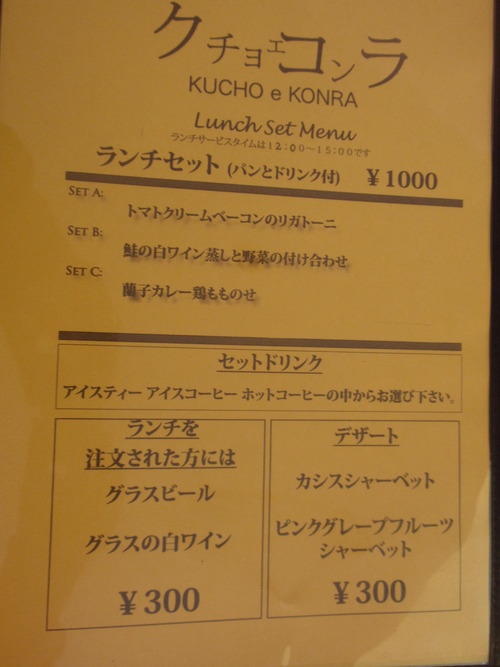 クチョエコンラ
KUCHO e KONRA
Lunch Set Menu
ランチサービスタイムは12:00〜15:00です
ランチセット (パンとドリンク付) ¥1000
SET A:
トマトクリームベーコンのリガトーニ
SET B:
鮭の白ワイン蒸しと野菜の付け合わせ
SET C:
蘭子カレー鶏もものせ
セットドリンク
アイスティー アイスコーヒー ホットコーヒーの中からお選び下さい。
ランチを
注文された方には
グラスビール
グラスの白ワイン
¥300
デザート
カシスシャーベット
ピンクグレープフルーツ
シャーベット
¥300